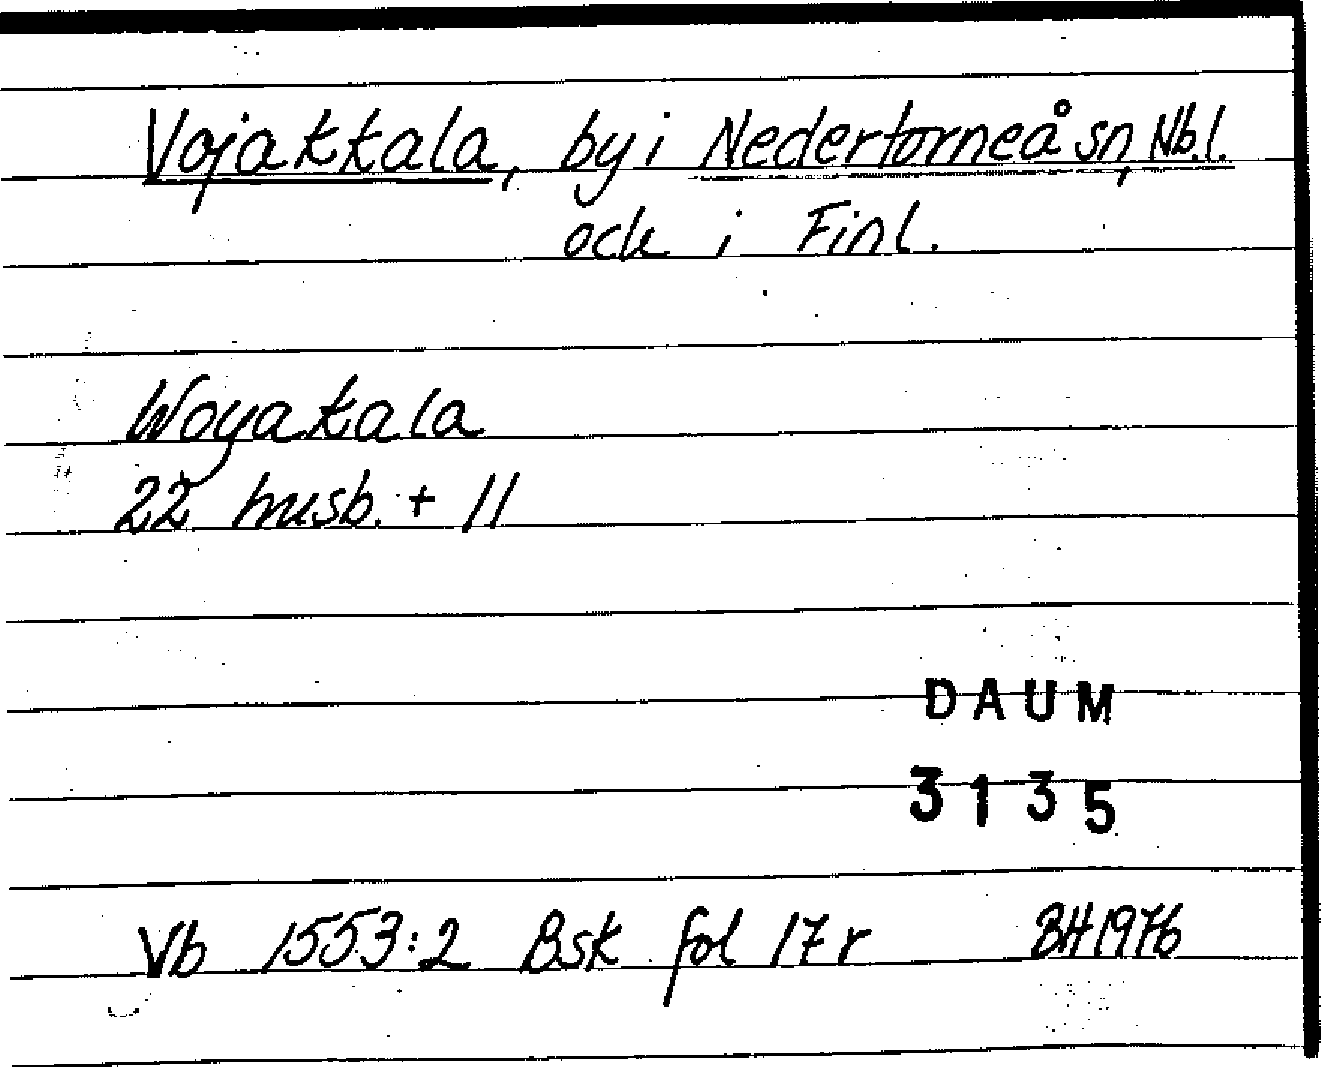 Vojakkala, by i Nedertorneå sn, Nb.l.
och i Finl.
Woyakala
22 husb. + 11
DAUM
3135
Vb 1553:2 Bsk fol 17 r BH 1976